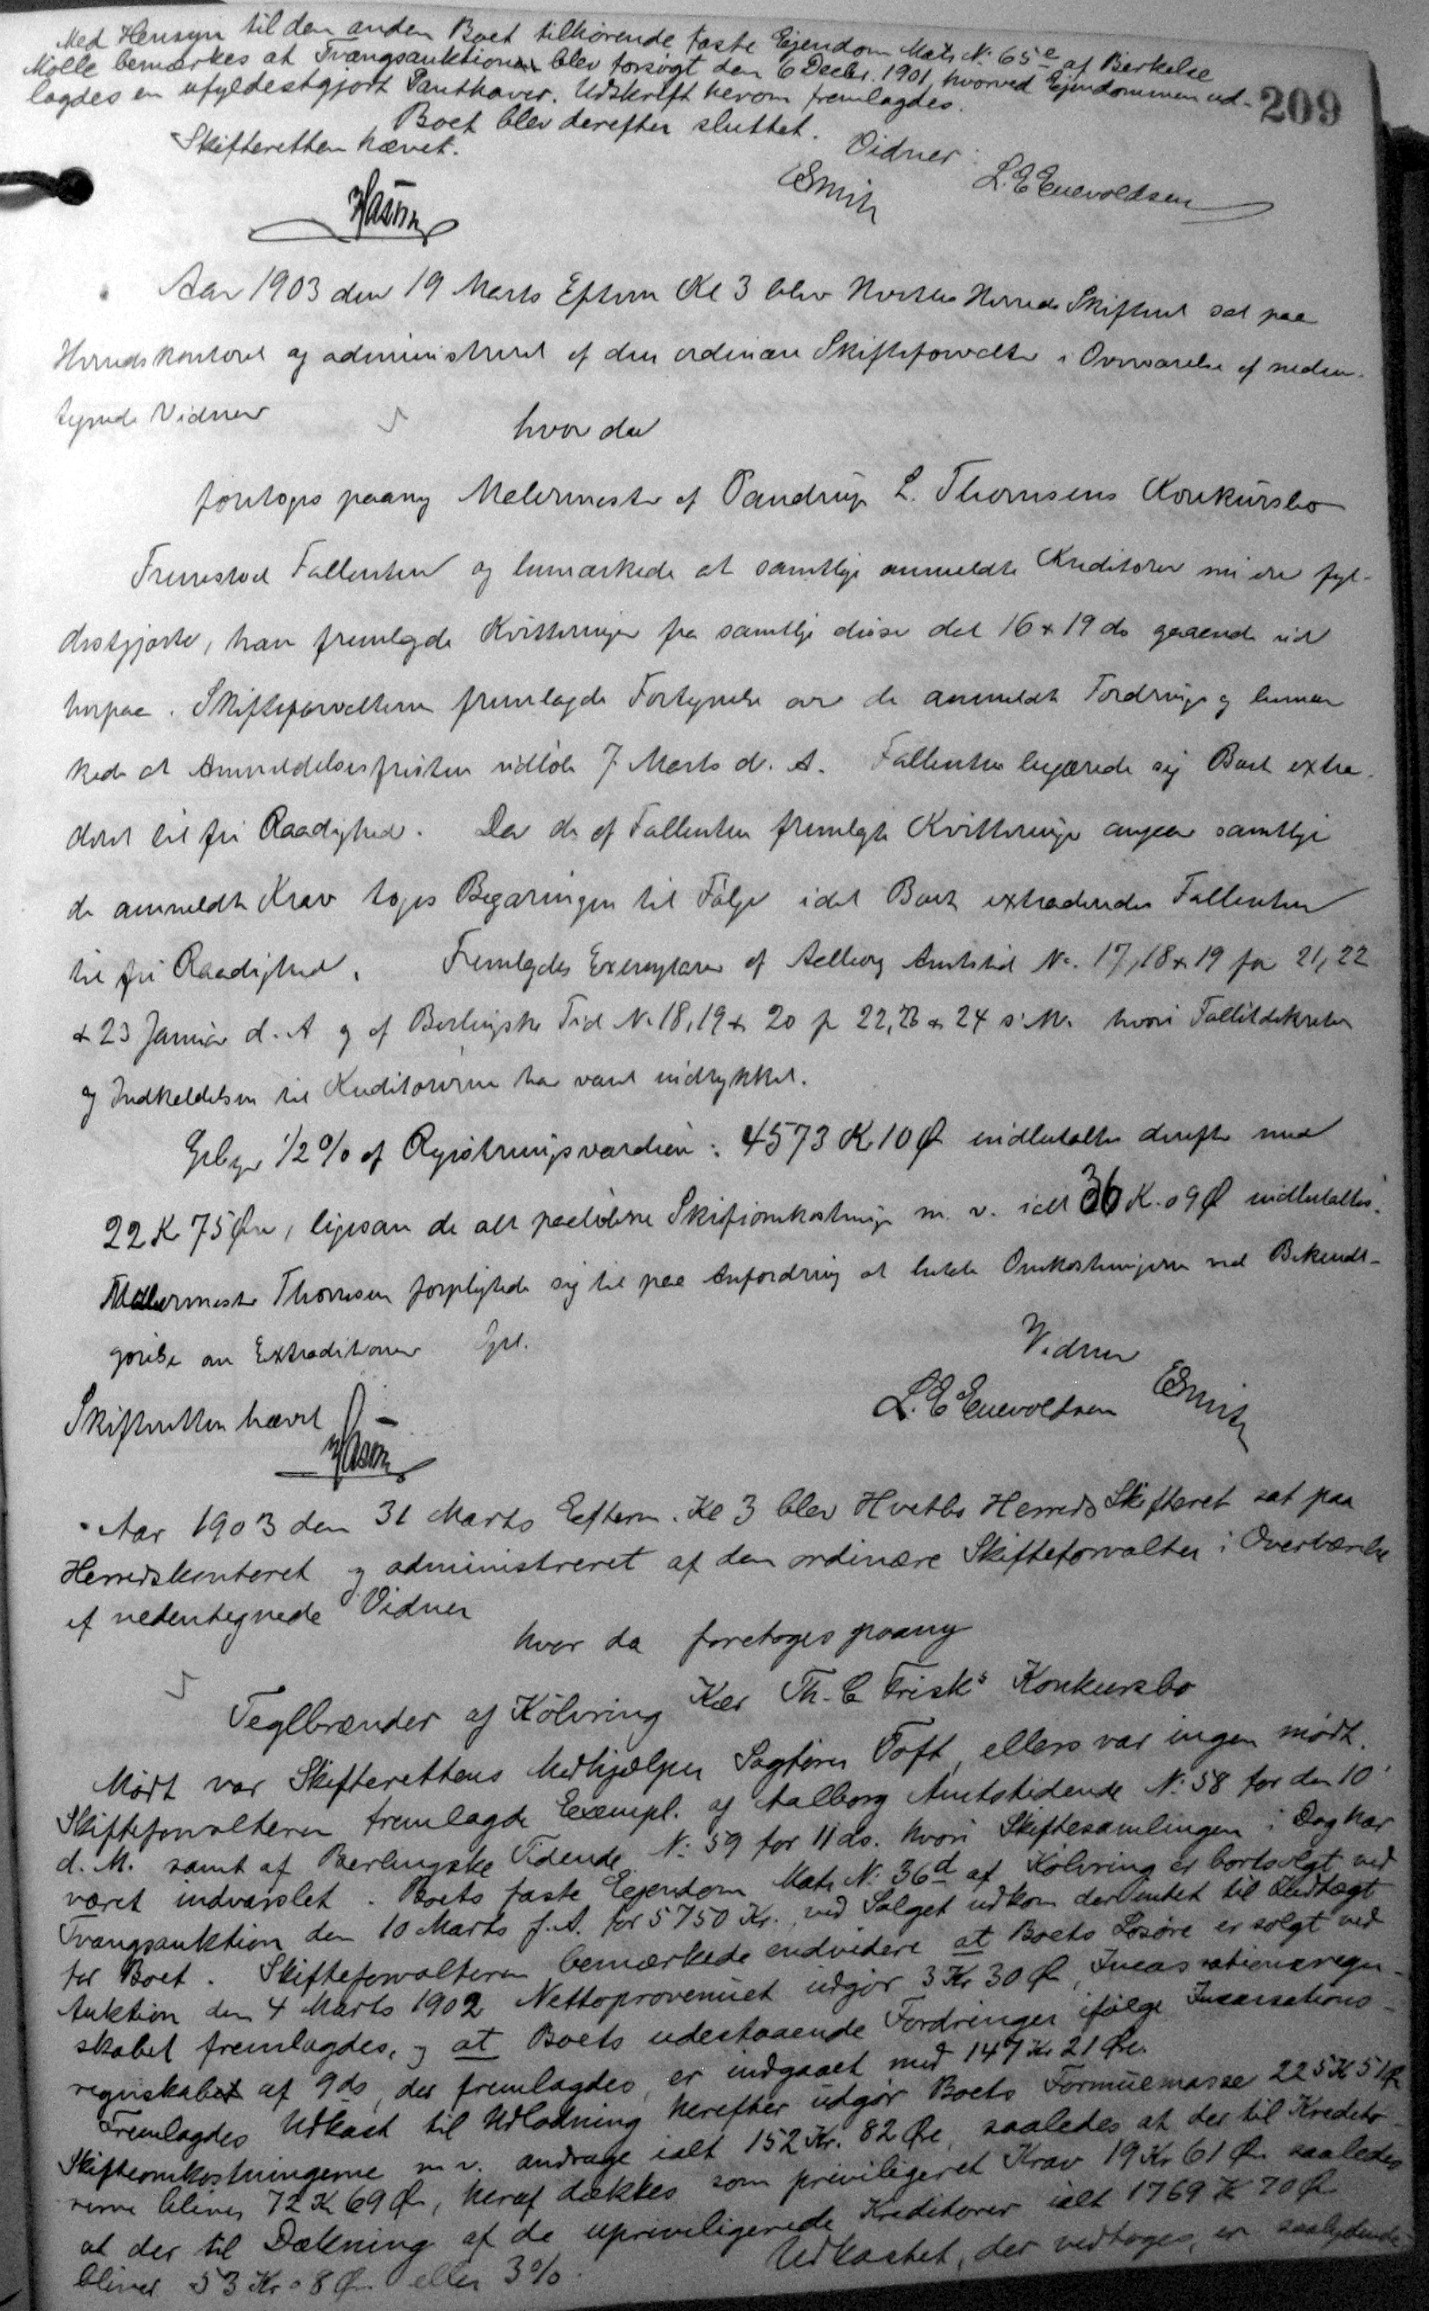 Med Hensyn til den anden Boet tilhørende faste Ejendom Matr. N: 65e af Berkelse
Mølle bemærkes at Tvangsauktionen blev forsøgt den 6 Decbr. 1901, hvorved Ejendommen ud-
lagdes en ufyldestgjort Panthaver. Udskrift herom fremlagdes.
209
Boet blev derefter sluttet.
Skifteretten hævet.
Vidner:
L. E Enevoldsen
Aar 1903 den 19 Marts Efterm Kl 3 blev Hvetbo Herreds Skifteret sat paa
Herredskontoret og administreret af den ordinære Skifteforvalter i Overværelse af neden-
tegnede Vidner
hvor da
foretoges paany Malermester af Pandrup L. Thomsens Konkursbo
Fremstod Fallenten og bemærkede at samtlige anmeldte Kreditorer nu ere fyl-
destgjorte, han fremlagde Kvitteringer fra samtlige disse del 16 & 19 ds gaaende ud
herpaa. Skifteforvalteren fremlagde Fortegnelse over de anmeldte Fordringer og bemær
kede at Anmeldelsesfristen udløb 7 Marts d. A. Fallenten begærede sig Boet extra-
deret til fri Raadighed. Da de af Fallenten fremlagte Kvitteringer angaar samtlige
de anmeldte Krav toges Begæringen til Følge idet Boet extraderedes Fallenten
til fri Raadighed. Fremlagdes Exemplarer af Aalborg Amtstid N: 17, 18 & 19 for 21, 22
& 23 Januar d. A og af Berlingske Tid N: 18, 19 & 20 for 22, 23 & 24 s. M. hvori Fallitdekretet
og Indkaldelsen til Kreditorerne har været indrykket.
Gebyr 1/2 % af Registreringsværdien: 4573 K 10 Ø indbetaltes derefter med
22 K 75 Øre, ligesom de alt paaløbne Skifteomkostninger m. v. ialt 36 K. 09 Ø indbetaltes.
Malermester Thomsen forpligtede sig til paa Anfordring at betale Omkostningerne ved Bekendt-
gørelse om Extraditionen
Vidner
Skifteretten hævet
L. E Enevoldsen
Aar 1903 den 31 Marts Efterm. Kl 3 blev Hvetbo Herreds Skifteret sat paa
Herredskontoret og administreret af den ordinære Skifteforvalter i Overværelse
af nedentegnede Vidner
hvor da foretoges paany
Teglbrænder af Kølvring Kær Th. C Frisks Konkursbo
Mødt var Skifterettens Medhjælper Sagfører Toft, ellers var ingen mødt.
Skifteforvalteren fremlagde Exempl. af Aalborg Amtstidende N: 58 for den 10'
d. M. samt af Berlingske Tidende N: 59 for 11 ds. hvori Skiftesamlingen i Dag har
været indvarslet. Boets faste Ejendom Matr N: 36d af Kølvring er bortsolgt ved
Tvangsauktion den 10 Marts f. A. for 5750 Kr., ved Salget udkom der intet til Indtægt
for Boet. Skifteforvalteren bemærkede endvidere at Boets Løsøre er solgt ved
Auktion den 4 Marts 1902 Nettoprovenuet udgør 3 Kr 30 Ør, Incassationsregn-
skabet fremlagdes, og at Boets udestaaende Fordringer ifølge Incassations-
regnskabet af 9 ds, der fremlagdes, er indgaaet med 147 Kr 21 Øre.
Fremlagdes Udkast til Udlodning herefter udgør Boets Formuemasse 225 K 51 Ør
Skifteomkostningerne m v. andrage ialt 152 Kr. 82 Øre, saaledes at der til Kredito-
rerne bliver 72 K 69 Ør, heraf dækkes som priviligeret Krav 19 Kr 61 Ør saaledes
at der til Dækning af de upriviligerede Kreditorer ialt 1769 K 70 Ør
bliver 53 Kr 08 Ør eller 3 %. Udkastet, der vedtoges, er saalydende